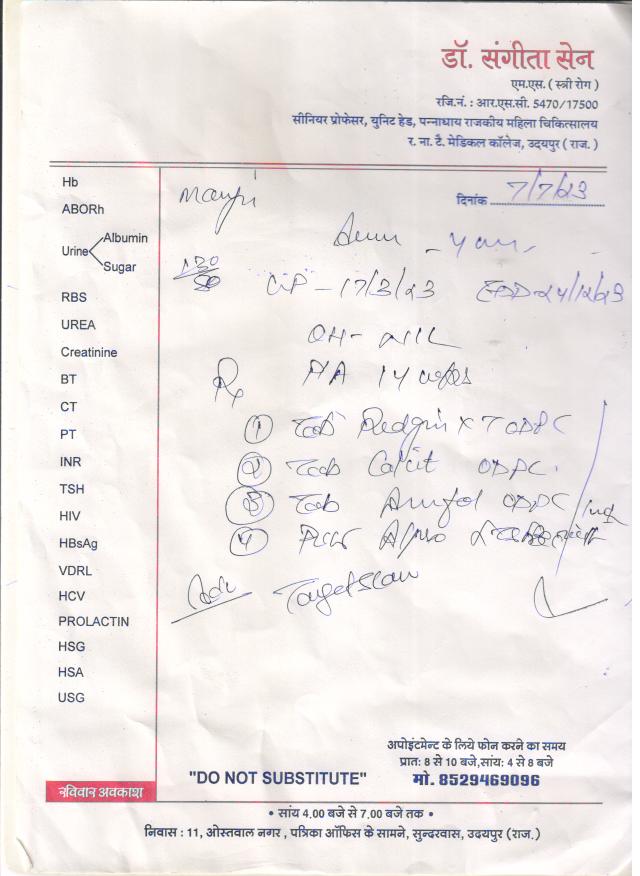 डॉ. संगीता सेन
एम.एस. ( स्त्री रोग )
रजि.नं. : आर.एस.सी. 5470/17500
सीनियर प्रोफेसर, युनिट हेड, पन्नाधाय राजकीय महिला चिकित्सालय
र. ना. टै. मेडिकल कॉलेज, उदयपुर ( राज. )
दिनांक 7/7/23
Hb
ABORh
Urine Albumin
Sugar
130
80
17/3/23 EDD-24/12/23
RBS
UREA
OH- NIL
Creatinine
P/A 14
Rx
BT
CT
① Tab ODPC
PT
INR
② Tab ODPC
TSH
③ Tab ODPC
HIV
④
HBsAg
VDRL
HCV
Adv Target Scan
PROLACTIN
HSG
HSA
USG
अपोइंटमेन्ट के लिये फोन करने का समय
प्रात: 8 से 10 बजे,सांय: 4 से 8 बजे
"DO NOT SUBSTITUTE" मो. 8529469096
रविवार अवकाश
• सांय 4.00 बजे से 7.00 बजे तक •
निवास : 11, ओस्तवाल नगर , पत्रिका ऑफिस के सामने, सुन्दरवास, उदयपुर (राज.)